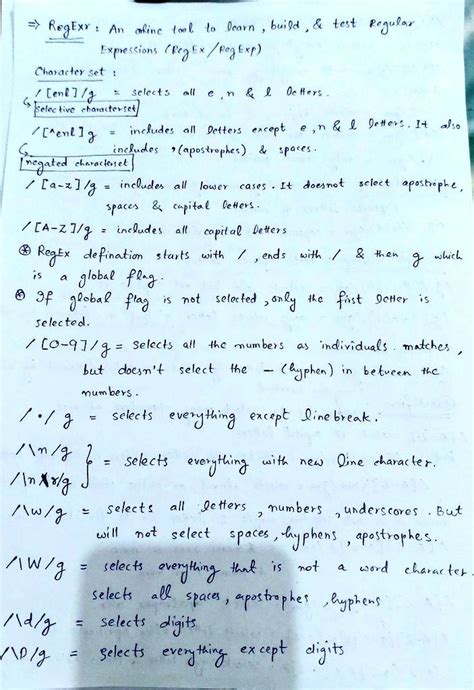 ⇒ RegExr : An online tool to learn, build, & test Regular
Expressions (RegEx/RegExp)
Character set :
/[enl]/g = selects all e,n & l letters.
selective characterset
/[^enl]g = includes all letters except e,n & l letters. It also
includes '(apostrophes) & spaces.
negated characterset
/[a-z]/g = includes all lower cases. It doesnot select apostrophe,
spaces & capital letters.
/[A-Z]/g = includes all capital letters
⊛ RegEx defination starts with /, ends with / & then g which
is a global flag.
⊛ If global flag is not selected, only the first letter is
selected.
/[0-9]/g = selects all the numbers as individuals matches,
but doesn't select the - (hyphen) in between the
numbers.
/./g = selects everything except linebreak.
/\n/g
= selects everything with new line character.
/\n\r/g
/\w/g = selects all letters, numbers, underscores. But
will not select spaces, hyphens, apostrophes.
/\W/g = selects everything that is not a word character.
selects all spaces, apostrophes, hyphens
/\d/g = selects digits
/\D/g = selects everything except digits